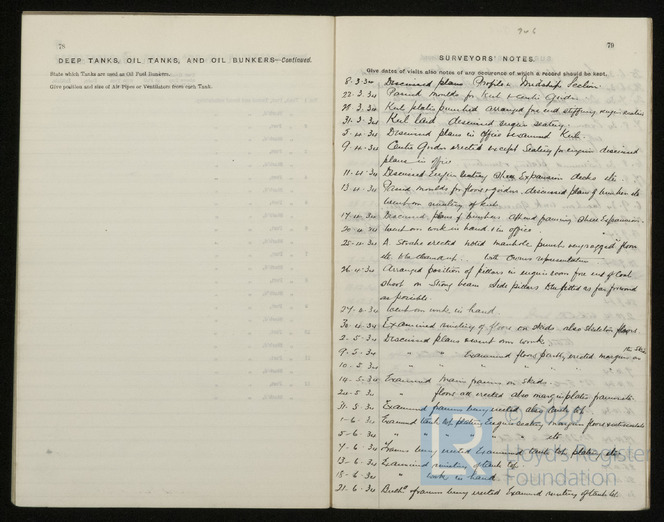 78
DEEP TANKS, OIL TANKS, AND OIL BUNKERS—Continued.
State which Tanks are used as Oil Fuel Bunkers.
Give position and size of Air Pipes or Ventilators from each Tank.
79
SURVEYORS' NOTES.
Give dates of visits also notes of any occurence of which a record should be kept.
8.3.34 Discussed plans Profile & Midship Section
22.3.34 Passed moulds for Keel & Centre Girder
28.3.34 Keel plates punched arranged for end stiffening engine seating
31.3.34 Keel laid discussed engine seating
5.4.34 Discussed plans in office examined Keel.
9.4.34 Centre Girder erected except seating for engine discussed
plans in office
11.4.34 Discussed engine seating Expansion decks etc
13.4.34 Passed moulds for floors & girders, discussed plan of bunkers etc
went on riveting of keel.
17.4.34 Discussed plans of bunkers
20.4.34 went over work in hand & in office
25.4.34 A. Strake erected noted manhole punch very ragged floors
etc to be cleaned up. with Owners representative
26.4.34 Arranged position of pillars in engine room fore end of Coal
shoot on Strong beam side pillars to be fitted as far forward
as possible.
27.4.34 Went over work in hand
30.4.34 Examined riveting of floors on skids. also skeleton floors.
2.5.34 Discussed plans & went over work
9.5.34 " " Examined floors partly erected margins on the skids
10.5.34 " " " " " "
14.5.34 Examined main frames on skids
24.5.34 " floors all erected also margin plates
31.5.34 Examined frames being erected also tank top
1-6-34 Examined tank top plating Engine seating margin floors
5-6-34 " " " " " etc
7-6-34 Frames being erected Examined tank top plating etc
13-6-34 Examined riveting of tank top
18-6-34 " work in hand
21-6-34 Bulkhds frames being erected Examined riveting of tank top
© 2020
LR
Lloyd's Register
Foundation